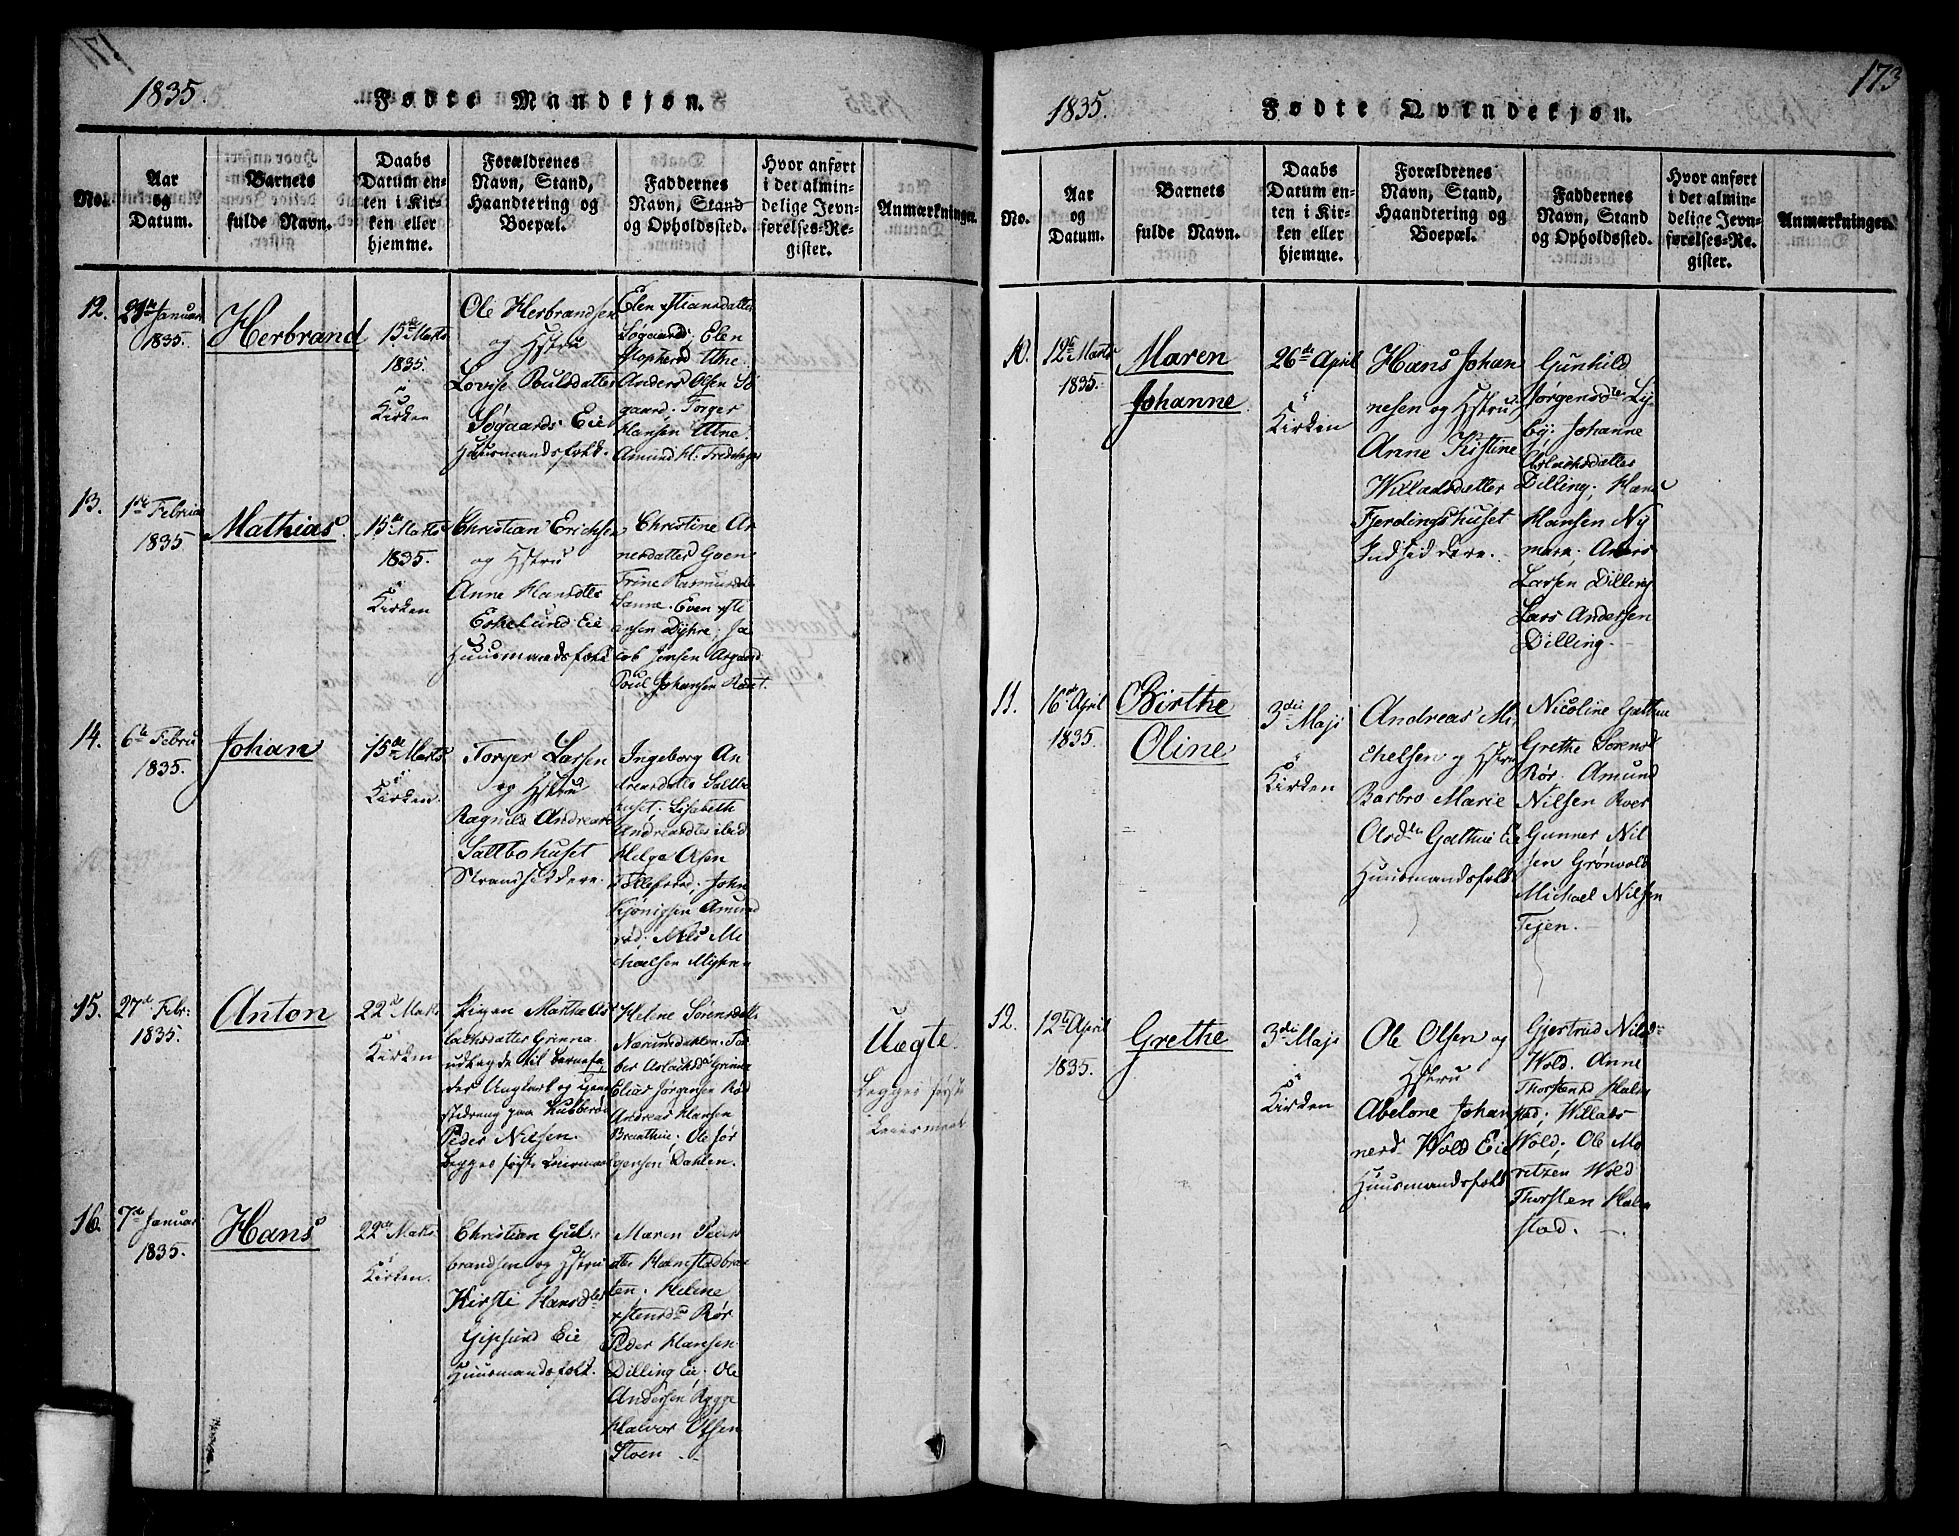 1835.
Fødte Mandkjøn.
No.
Aar
og
Datum.
Barnets
fulde Navn.
Daabs
Datum en-
ten i Kir-
ken eller
hjemme.
Forældrenes
Navn, Stand,
Haandtering og
Boepæl.
Faddernes
Navn, Stand
og Opholdssted.
Hvor anført
i det almin-
delige Jevn-
førelses-Re-
gister.
Anmærkninger.
12.
Januar
1835.
Herbrand
15de Marts
1835.
i
Kirken
Ole Herbrandsen
og Hstru
Lovise Poulsdatter
Søgaards Eie
Huusmandsfolk.
Elen
Søgaard; Elen
Utne.
Anders Olsen Sø
gaard. Torger
Hansen Utne.
Amund H:
13.
1ste Februar
1835
Mathias.
15de Marts
1835.
i
Kirken
Christian Erichsen
og Hstru
Anne Hansdtr
Eskelund Eie
Huusmandsfolk
Christine An
Trine Rasmusdtr
Sanne. Even
ansen Dyhre; Ja
cob Jensen
Poul Johansen
14.
6te Febru
1835.
Johan
15de Marts
i
Kirken.
Torger Larsen
og Hstru
Ragnild Andreas
Saltbohuset
Strandsiddere.
Ingeborg An
dreasdtr Saltbo
huset; Lisabeth
Andreasdtr ibid
Helge Olsen
John
Amund
rød; Niels Mi
chaelsen
15.
27de Febr:
1835.
Anton
22de Marts
i
Kirken
Pigen Marthe As
lachsdatter Grimna
udlagde til Barnefa
der Ungkarl og
paa
Peder Nilsen.
Begges første Leiermaal
Helene Sørensdtr
ber Aslachsd Grimna
Elias Jørgensen
Andreas Hansen
Ole Jør
gensen Dahlen.
Uægte.
Begges første
Leiermaal
16.
7de Januar
1835.
Hans
22de Marts
i
Kirken.
Christian Gul-
brandsen og Hstru
Kirsti Hansdtr
Gipsund Eie
Huusmandsfolk.
Maren Peder
dtr
ten; Helene
Rør
Peder Hansen
Dilling Eie; Ole
Andersen Rygge
Halvor Olsen
Stoen
173
1835.
Fødte Qvindekjøn.
No.
Aar
og
Datum.
Barnets
fulde Navn.
Daabs
Datum en-
ten i Kir-
ken eller
hjemme.
Forældrenes
Navn, Stand,
Haandtering og
Boepæl.
Faddernes
Navn, Stand
og Opholdssted.
Hvor anført
i det almin-
delige Jevn-
førelses-Re-
gister.
Anmærkninger.
10.
12te Marts
1835.
Maren
Johanne
26de April
i
Kirken
Hans Johan
nesen og Hstru
Anne Kistine
Willadsdatter
Fjerdingshuset
Indsiddere.
Gunhild
Jørgensdtr Ly
by; Johanne
Aslachsdatter
Dilling; Hans
Hansen Ny
mare. Anders
Larsen Dilling
Lars Andersen
Dilling.
11.
16de April
1835.
Birthe
Oline
3die Maji
i
Kirken
Andreas Mi
chelsen og Hstru
Barbro Marie
Olsdtr Gathue Eie
Huusmandsfolk
Nicoline Gathue
Grethe Sørensd
Rør. Amund
Nilsen Roer
Gunner Nil
sen Grønvold
Michael Nilsen
Tejen.
12.
12te April
1835.
Grethe
3die Maji
i
Kirken
Ole Olsen og
Hstru
Abelone Johan
nesd Wold Eie
Huusmandsfolk
Gjertrud Nilsd
Wold. Anne
Thorstensd Halm
stad; Willads
Wold; Ole Mo
ritzen Wold
Thorsten Halm
stad.